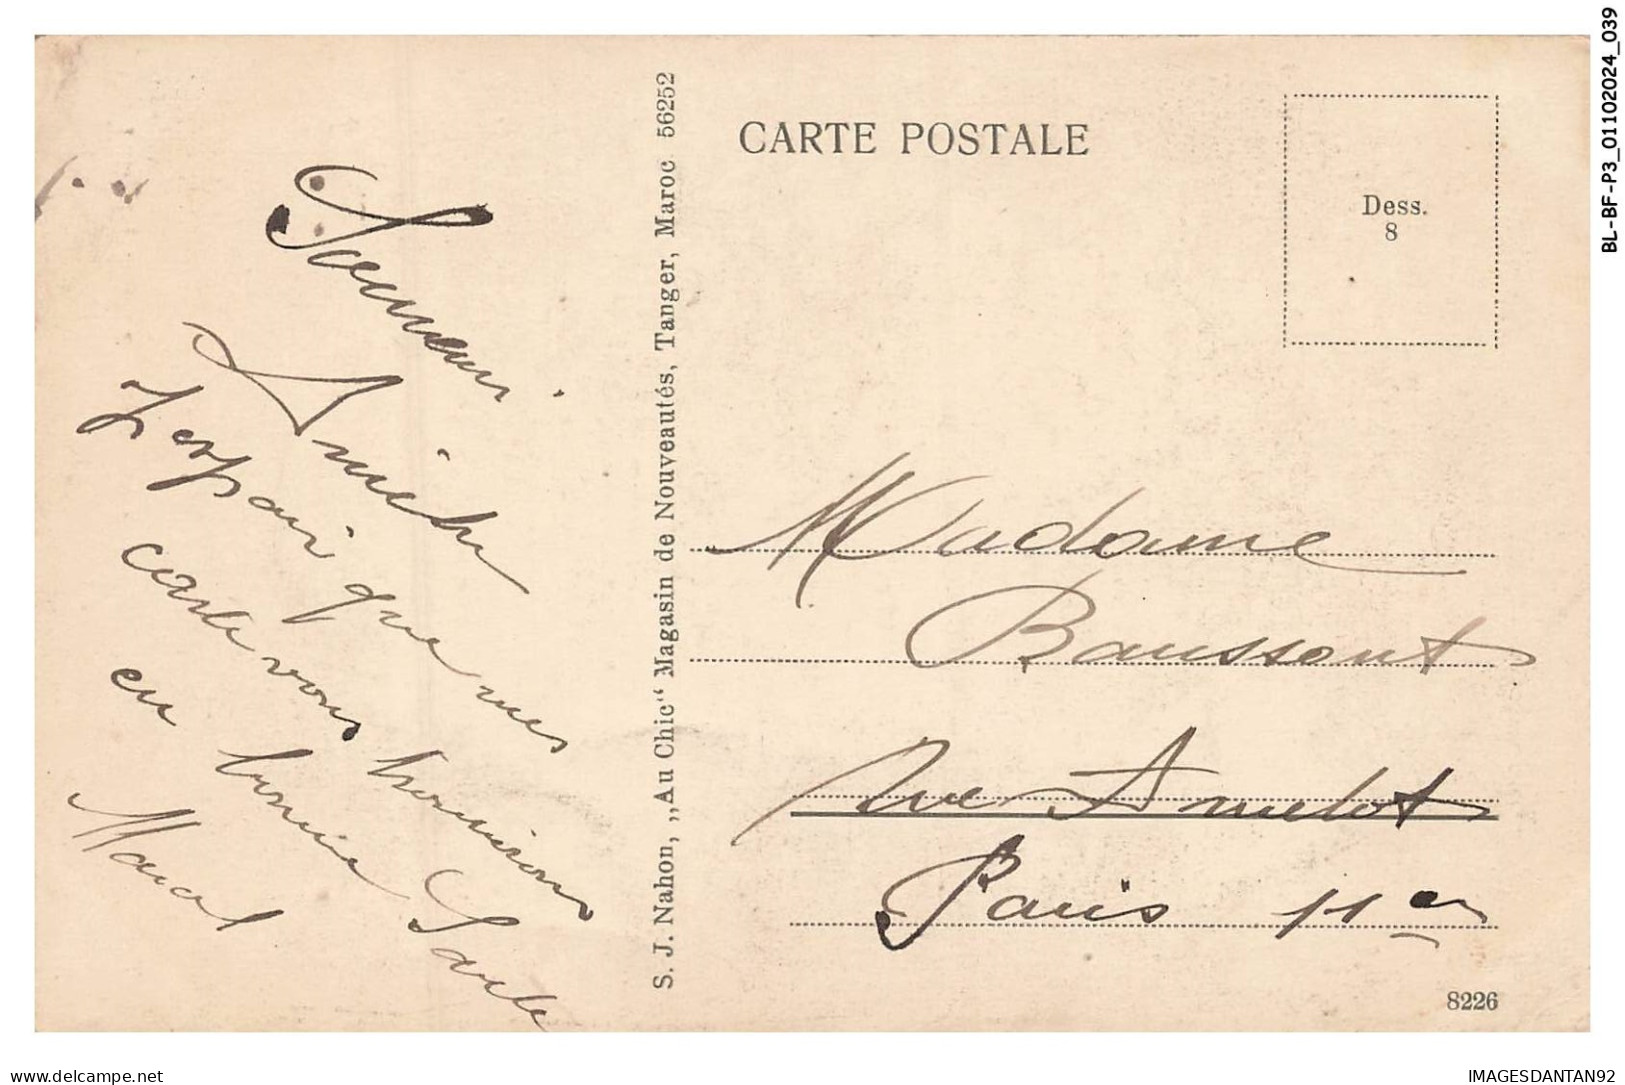 BL-BF-P3_01102024_039
CARTE POSTALE
Dess.
8
S. J. Nahon, „Au Chic“ Magasin de Nouveautés, Tanger, Maroc 56252
Souvenir
Amitié
J'espair que mes
carte vous
en bonne Sante
Marcel
Madame
Baussont
Rue Amelot
Paris 11er
8226
delcampe.net
IMAGESDANTAN92